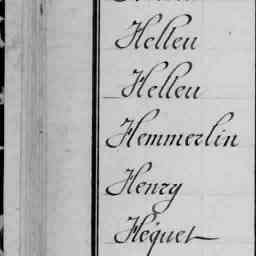 Helleu
Helleu
Hemmerlin
Henry
Héquet